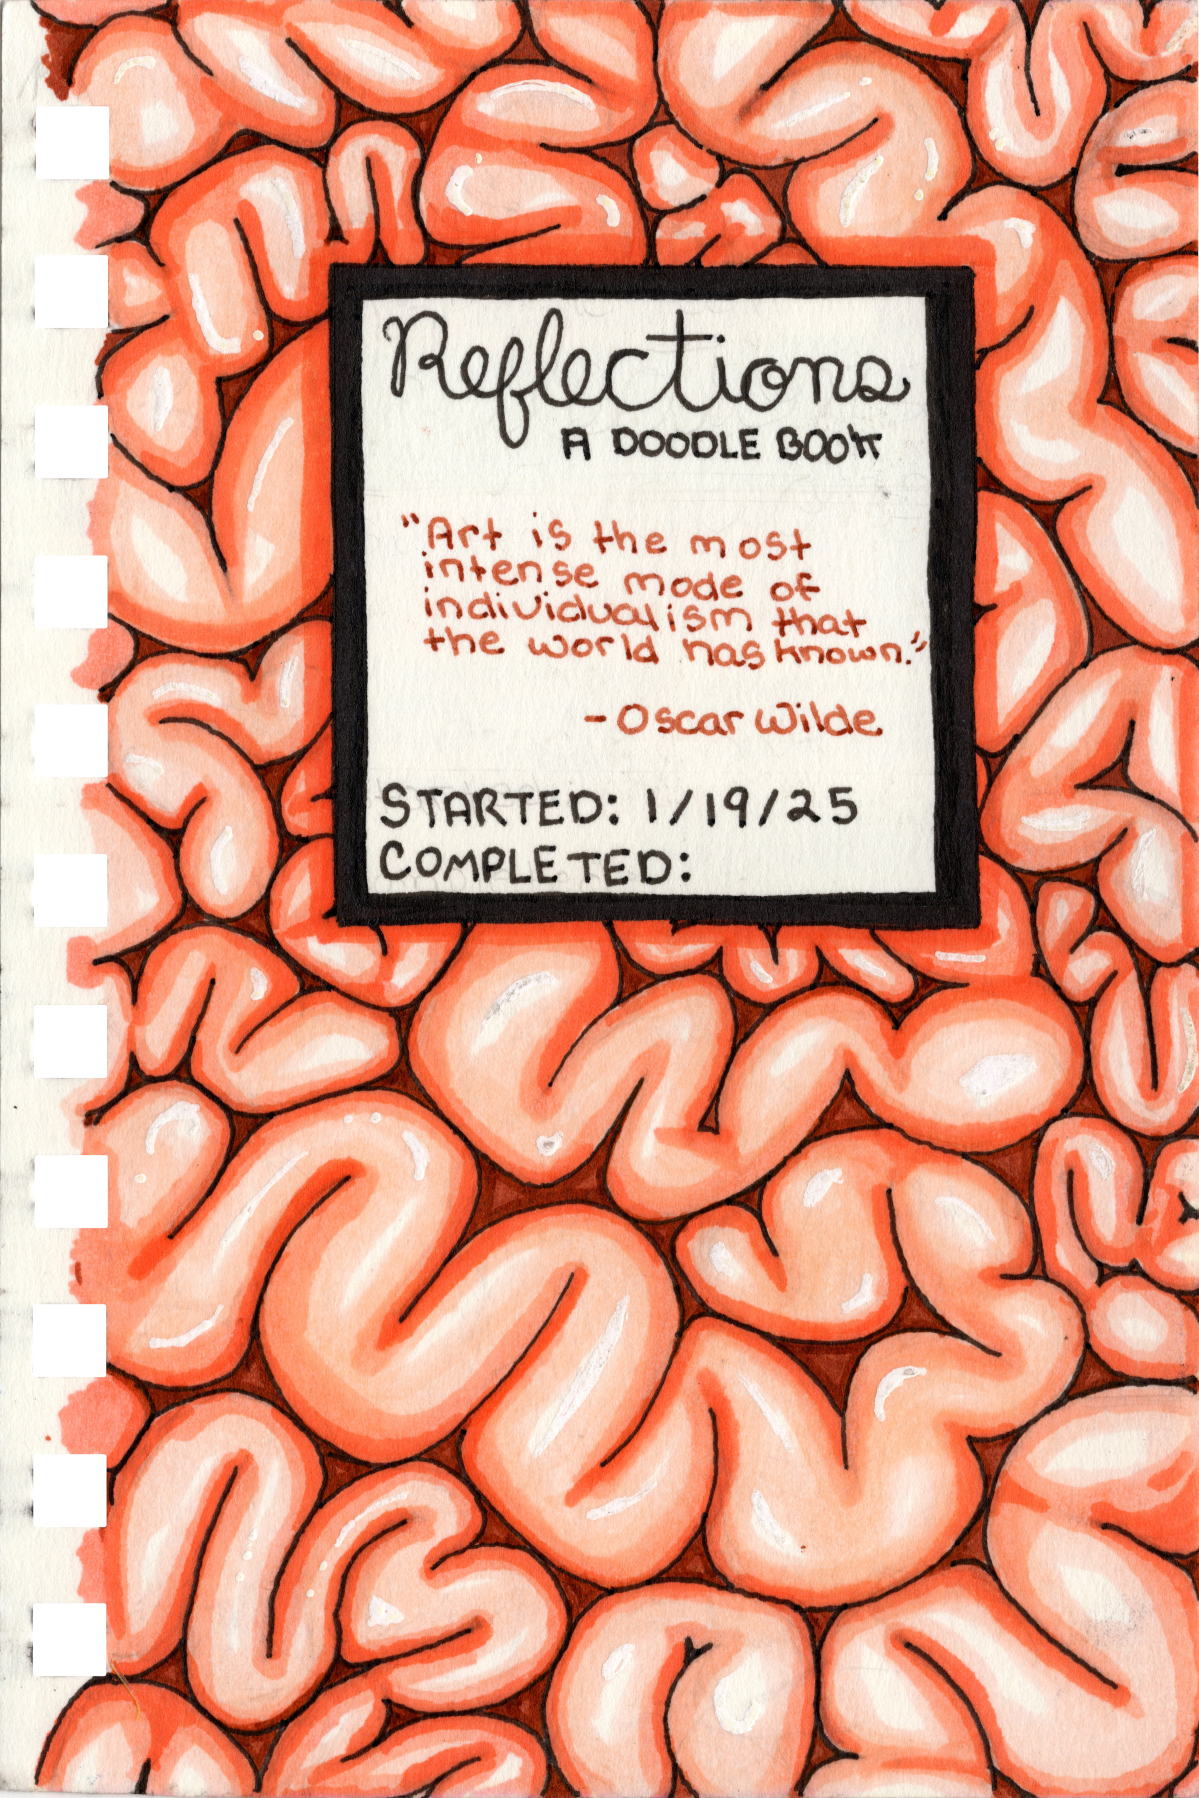 Reflections
A DOODLE BOOK
"Art is the most
intense mode of
individualism that
the world has known."
- Oscar Wilde
STARTED: 1/19/25
COMPLETED: